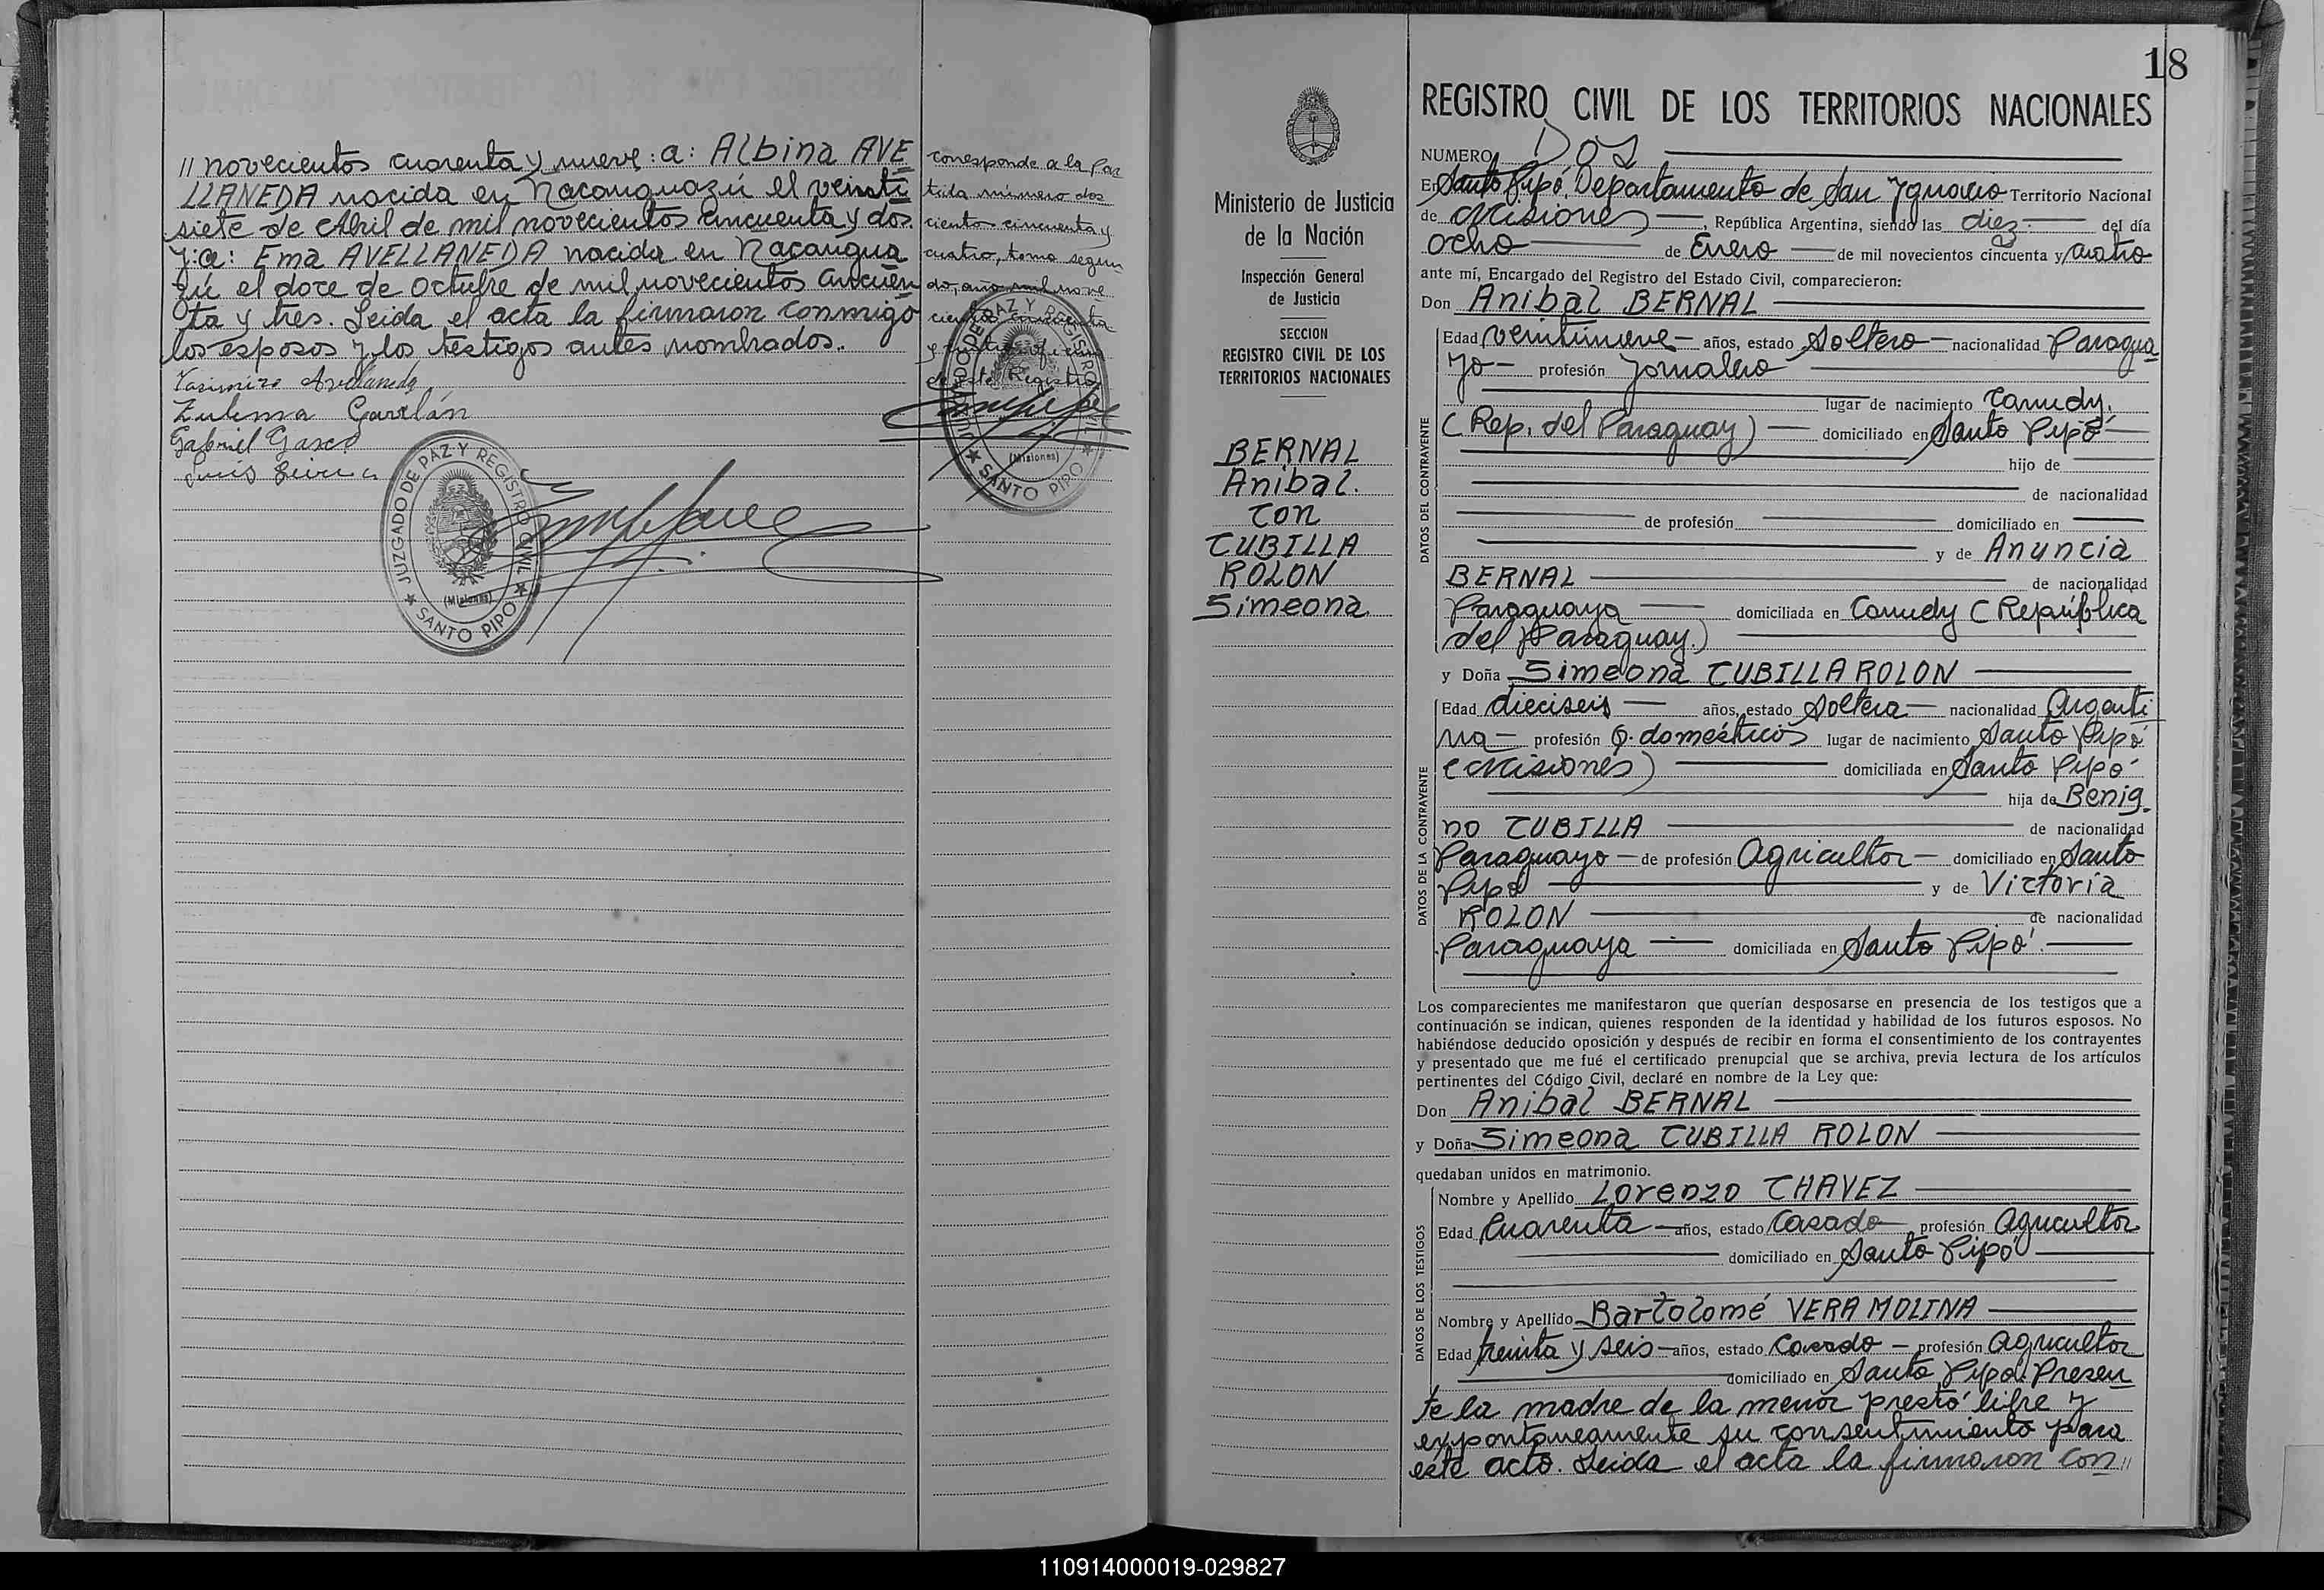 // novecientos cuarenta y nueve: a: Albina AVE
LLANEDA nacida en Ñacanguazú el veinti
siete de Abril de mil novecientos cincuenta y dos.
y: a: Ema AVELLANEDA nacida en Ñacangua
zú el doce de Octubre de mil novecientos cincuen
ta y tres. Leida el acta la firmaron conmigo
los esposos y los testigos antes nombrados.
Avellaneda
Zulema
Gabriel
Luis
JUZGADO DE PAZ Y REGISTRO CIVIL
(Misiones)
SANTO PIPO
corresponde a la par
tida número dos
cientos cincuenta y
cuatro, tomo segun
do, año mil nove
cientos cincuenta
de este Registro
JUZGADO DE PAZ Y REGISTRO CIVIL
(Misiones)
SANTO PIPO
Ministerio de Justicia
de la Nación
Inspección General
de Justicia
SECCION
REGISTRO CIVIL DE LOS
TERRITORIOS NACIONALES
BERNAL
Anibal.
con
CUBILLA
ROLON
Simeona
18
REGISTRO CIVIL DE LOS TERRITORIOS NACIONALES
NUMERO DOS
En Santo Pipó Departamento de San Ygnacio Territorio Nacional
de Misiones, República Argentina, siendo las diez del día
ocho de Enero de mil novecientos cincuenta y cuatro
ante mí, Encargado del Registro del Estado Civil, comparecieron:
Don Anibal BERNAL
DATOS DEL CONTRAYENTE
Edad veintinueve años, estado Soltero nacionalidad Paragua
yo profesión Jornalero
lugar de nacimiento
(Rep. del Paraguay) domiciliado en Santo Pipó
hijo de
de nacionalidad
de profesión domiciliado en
y de Anuncia
BERNAL de nacionalidad
Paraguaya domiciliada en (República
del Paraguay.)
y Doña Simeona CUBILLA ROLON
DATOS DE LA CONTRAYENTE
Edad dieciseis años, estado Soltera nacionalidad Argenti
na profesión Q. domésticos lugar de nacimiento Santo Pipó
(Misiones) domiciliada en Santo Pipó
hija de Benig
no CUBILLA de nacionalidad
Paraguayo de profesión Agricultor domiciliado en Santo
Pipó y de Victoria
ROLON de nacionalidad
Paraguaya domiciliada en Santo Pipó.
Los comparecientes me manifestaron que querían desposarse en presencia de los testigos que a
continuación se indican, quienes responden de la identidad y habilidad de los futuros esposos. No
habiéndose deducido oposición y después de recibir en forma el consentimiento de los contrayentes
y presentado que me fué el certificado prenupcial que se archiva, previa lectura de los artículos
pertinentes del Código Civil, declaré en nombre de la Ley que:
Don Anibal BERNAL
y Doña Simeona CUBILLA ROLON
quedaban unidos en matrimonio.
DATOS DE LOS TESTIGOS
Nombre y Apellido Lorenzo CHAVEZ
Edad Cuarenta años, estado Casado profesión Agricultor
domiciliado en Santo Pipó
Nombre y Apellido Bartolomé VERA MOLINA
Edad treinta y seis años, estado Casado profesión Agricultor
domiciliado en Santo Pipó. Presen
te la madre de la menor prestó libre y
expontaneamente su consentimiento para
este acto. Leida el acta la firmaron con //
110914000019-029827